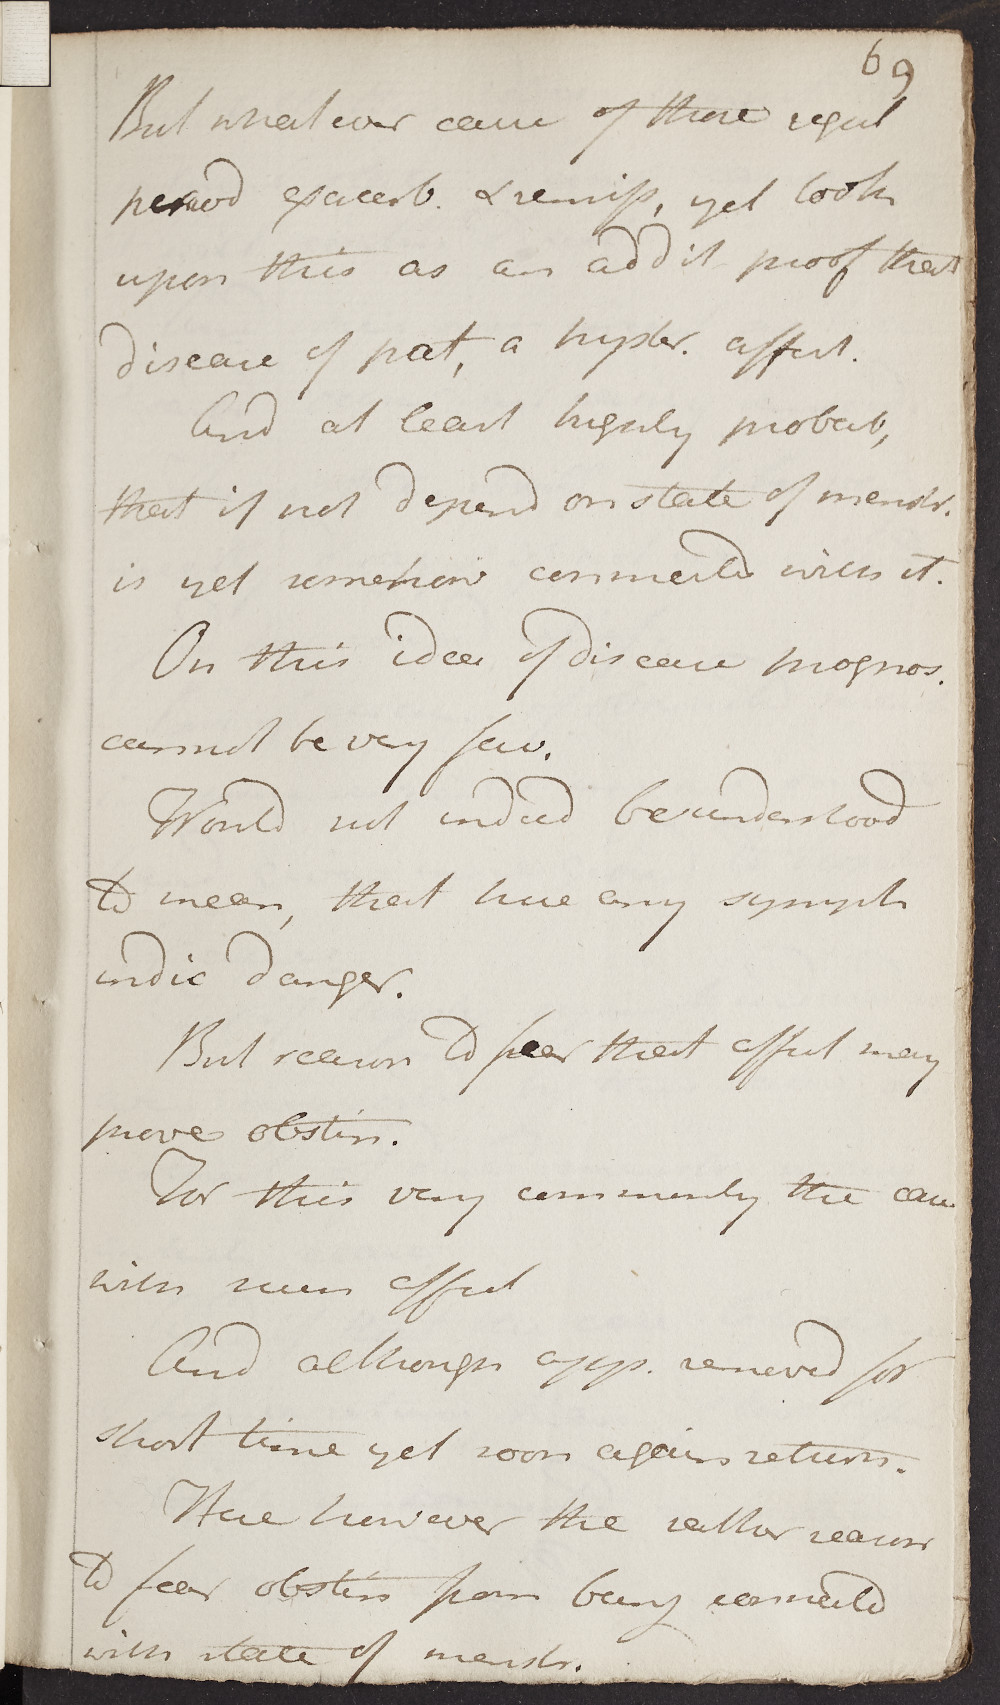 69
But whatever cause of these regul
period exacerb. & remiss, yet look
upon this as an addit proof that
disease of pat, a hyster. affect.
And at least highly probab,
that if not depend on state of menstr.
is yet somehow connected with it.
On this idea of disease prognos.
cannot be very fav.
Would not indeed be understood
to mean, that here any sympt
indic danger.
But reason to fear that affect may
prove obstin.
For this very commonly the case
with such affect
And although app. removed for
short time yet soon again return.
Here however the rather reason
to fear obstin from being connected
with state of menstr.